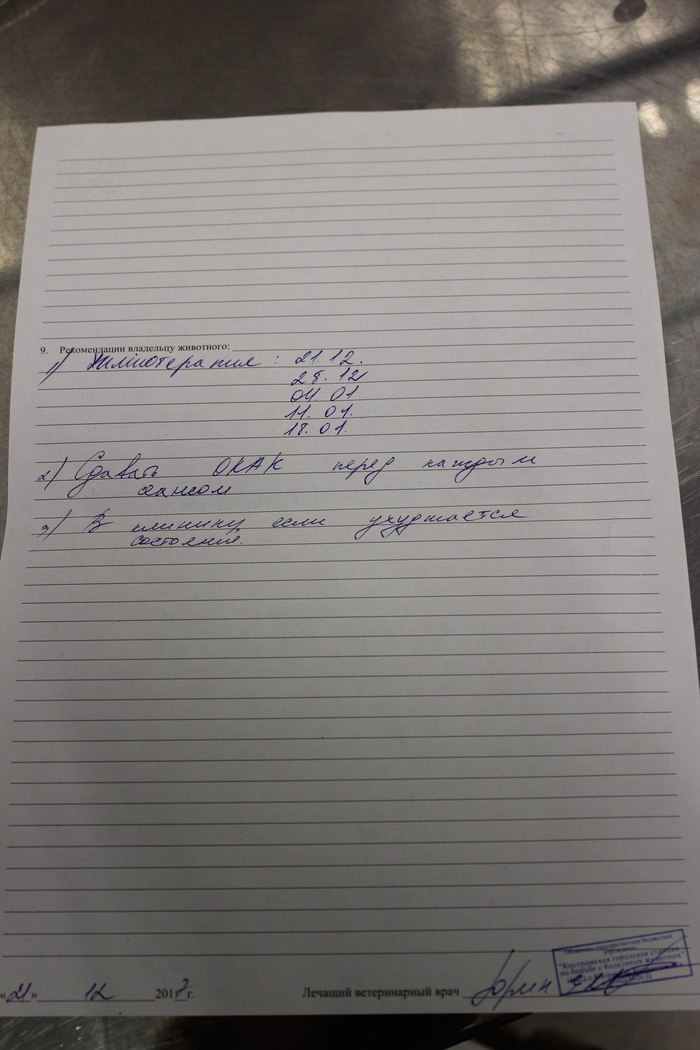 9. Рекомендации владельцу животного:
1) Химиотерапия: 21.12.
28.12
04.01
11.01.
18.01.
2) Сдавать ОКАК перед каждым
сеансом
3) В клинику если ухудшается
состояние.
Областное государственное бюджетное
учреждение
"Костромская городская станция
по борьбе с болезнями животных"
«21» 12 2017 г. Лечащий ветеринарный врач